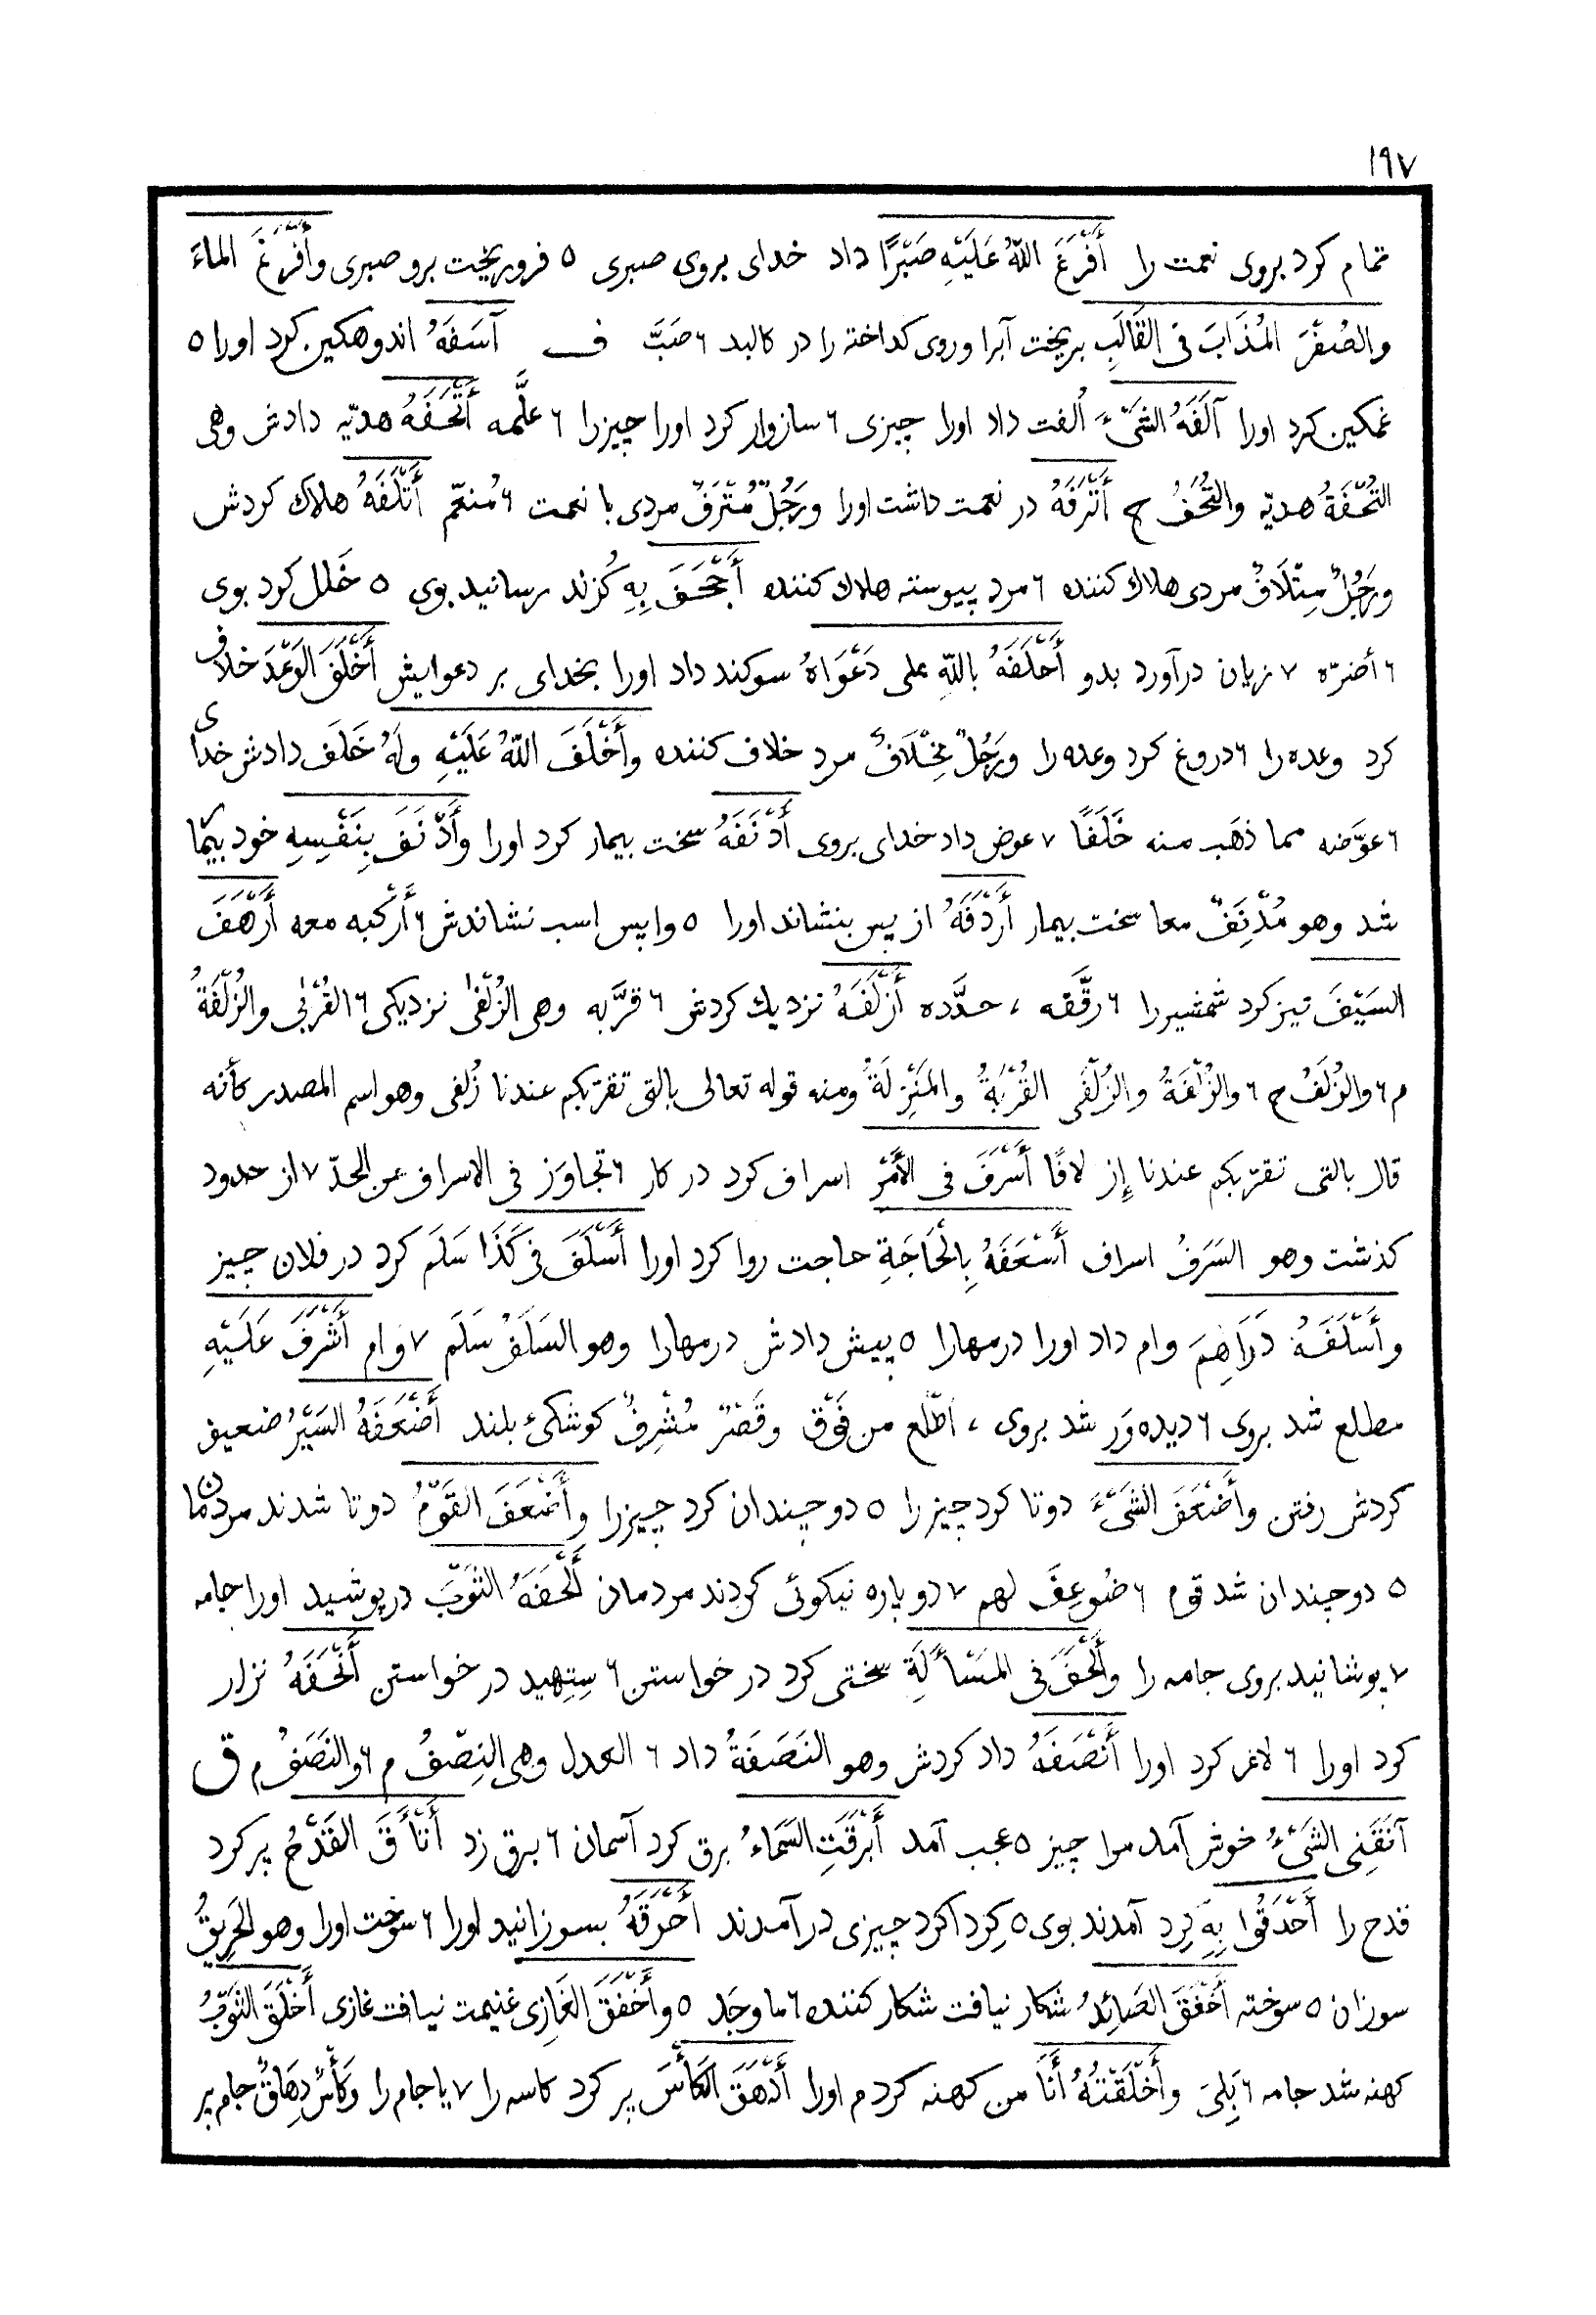 ١٩٧
تمام کرد بروی نعمت را أَفْرَغَ اللّهُ عَلَيْهِ صَبْرًا داد خدای بروی صبری ٥ فرو ریخت برو صبری وأَفْرَغَ الماءَ
والصُفْرَ المُذَابَ فی القَالَبِ بریخت آبرا وروی کداخته را در کالبد ٦ صَبَّ ف آسَفَهُ اندوهکین کرد اورا ٥
غمکین کرد اورا آلَفَهُ الشَیْءَ اُلفت داد اورا چیزی ٦ سازوار کرد اورا چیزرا ٦ علَّمه أَتْحَفَهُ هدیّه دادش وهی
التُحْفَةُ هدیّه والتُحَفُ ج أَتْرَفَهُ در نعمت داشت اورا ورَجُلٌ مُتْرَفٌ مردی با نعمت ٦ مُنعّم أَتْلَفَهُ هلاك کردش
ورَجُلٌ مِتْلَافٌ مردی هلاك کننده ٦ مرد پیوسته هلاك کننده أَجْحَفَ بِهِ کُزند رسانید بوی ٥ خَلل کرد بوی
٦ أضرّه ٧ زیان درآورد بدو أَحْلَفَهُ بِاللّهِ علی دَعْوَاهُ سوکند داد اورا بخدای بر دعوایش أَخْلَفَ الوَعْدَ خلاف
کرد وعده را ٦ دروغ کرد وعده را ورَجُلٌ مِخْلَافٌ مرد خلاف کننده وأَخْلَفَ اللّهُ عَلَيْهِ ولَهُ خَلَف دادش خدای
٦ عوّضه مما ذهَب منه خَلَفًا ٧ عوض داد خدای بروی أَدْنَفَهُ سخت بیمار کرد اورا وأَدْنَفَ بِنَفْسِهِ خود بیمار
شد وهو مُدْنِفٌ معا سخت بیمار أَرْدَفَهُ از پس بنشاند اورا ٥ واپس اسب نشاندش ٦ أَرْکبه معه أَرْهَفَ
السَيْفَ تیز کرد شمشیررا ٦ رقَّقه ، حدَّده أَزْلَفَهُ نزدیك کردش ٦ قرَّبه وهی الزُلْفیٰ نزدیکی ٦ القُرْبٰی والزُلْفَةُ
م ٦ والزُلَفُ ج ٦ والزُلْفَةُ والزُلْفَی القُرْبَةُ والمَنْزِلَةُ ومنه قوله تعالی بالتی تقرّبکم عندنا زُلفی وهو اسم المصدر کأنه
قال بالتی تقرّبکم عندنا إز لافًا أَسْرَفَ فی الأَمْرِ اسراف کرد در کار ٦ تجاوَز فی الاسراف عن الحدّ ٧ از حدود
کذشت وهو السَرَفُ اسراف أَسْعَفَهُ بِالْحَاجَةِ حاجت روا کرد اورا أَسْلَفَ فی کَذَا سَلَم کرد در فلان چیز
وأَسْلَفَهُ دَرَاهِمَ وام داد اورا درمهارا ٥ پیش دادش درمهارا وهو السَلَفُ سَلَم ٧ وام أَشْرَفَ عَلَيْهِ
مطلع شد بروی ٦ دیده وَر شد بروی ، اطّلع من فَوْق وقَصْرٌ مُشْرِفٌ کوشکیٔ بلند أَضْعَفَهُ السَيْرُ ضعیف
کردش رفتن وأَضْعَفَ الشَیْءَ دوتا کرد چیز را ٥ دو چندان کرد چیزرا وأَضْعَفَ القَوْمُ دوتا شدند مردمان
٥ دو چندان شد قوم ٦ ضُوعِفَ لهم ٧ دو باره نیکوئی کردند مردمان أَلْحَفَهُ الثَوْبَ درپوشید اورا جامه
٧ پوشانید بروی جامه را وأَلْحَفَ فی المَسْأَلَةِ سختی کرد در خواستن ٦ سِتِهید در خواستن أَنْحَفَهُ نزار
کرد اورا ٦ لاغر کرد اورا أَنْصَفَهُ داد کردش وهو النَصَفَةُ داد ٦ العدل وهی النِصْفُ م ٦ والنَصَفُ م ق
آنَقَنِی الشَیْءُ خوش آمد مرا چیز ٥ عجب آمد أَبْرَقَتِ السَمَاءُ برق کرد آسمان ٦ برق زد أَتْأَقَ القَدَحُ پر کرد
قدح را أَحْدَقُوا بِهِ کِرد آمدند بوی ٥ کِرداکرد چیزی درآمدند أَحْرَقَهُ بسوزانید اورا ٦ سوخت اورا وهو الحَرِيقُ
سوزان ٥ سوخته أَخْفَقَ الصَائِدُ شکار نیافت شکار کننده ٦ ما وجَد ٥ وأَخْفَقَ الغَازِی غنیمت نیافت غازی أَخْلَقَ الثَوْبُ
کهنه شد جامه ٦ بَلِیَ وأَخْلَقْتُهُ أَنَا من کهنه کردم اورا أَدْهَقَ الکَأْسَ پر کرد کاسه را ٧ یا جام را وکَأْسٌ دِهَاقٌ جام پر